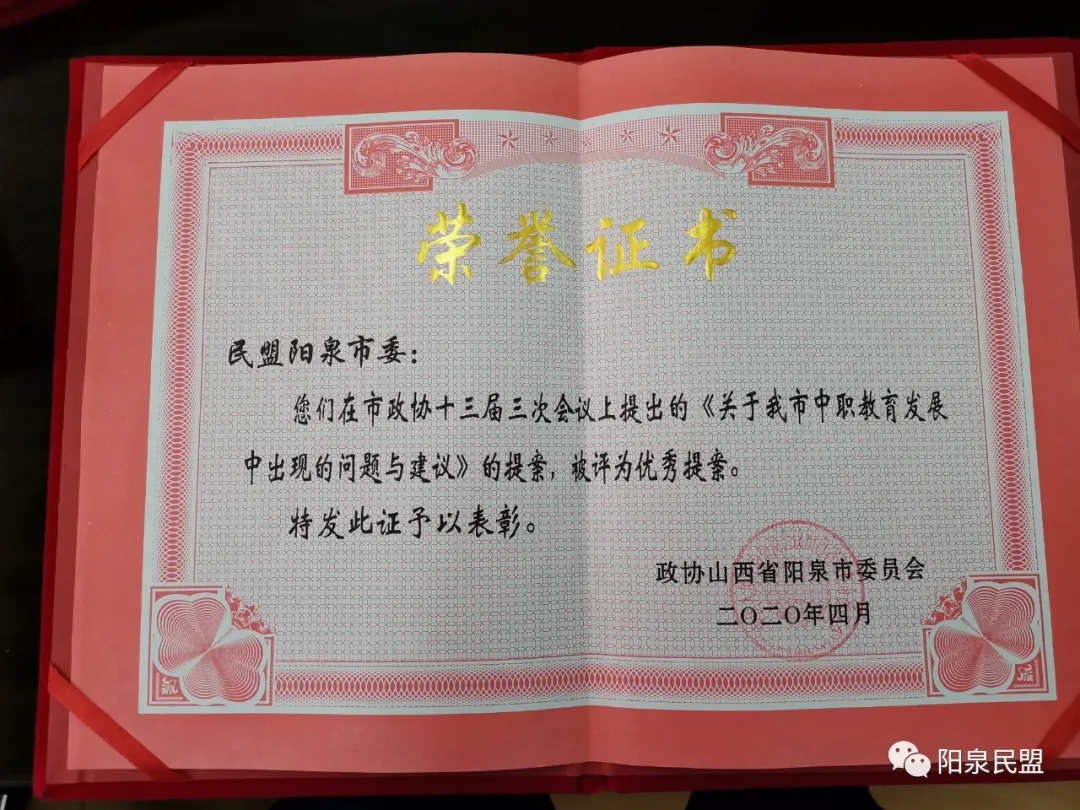 荣誉证书
民盟阳泉市委：
您们在市政协十三届三次会议上提出的《关于我市中职教育发展
中出现的问题与建议》的提案，被评为优秀提案。
特发此证予以表彰。
政协山西省阳泉市委员会
二〇二〇年四月
阳泉民盟